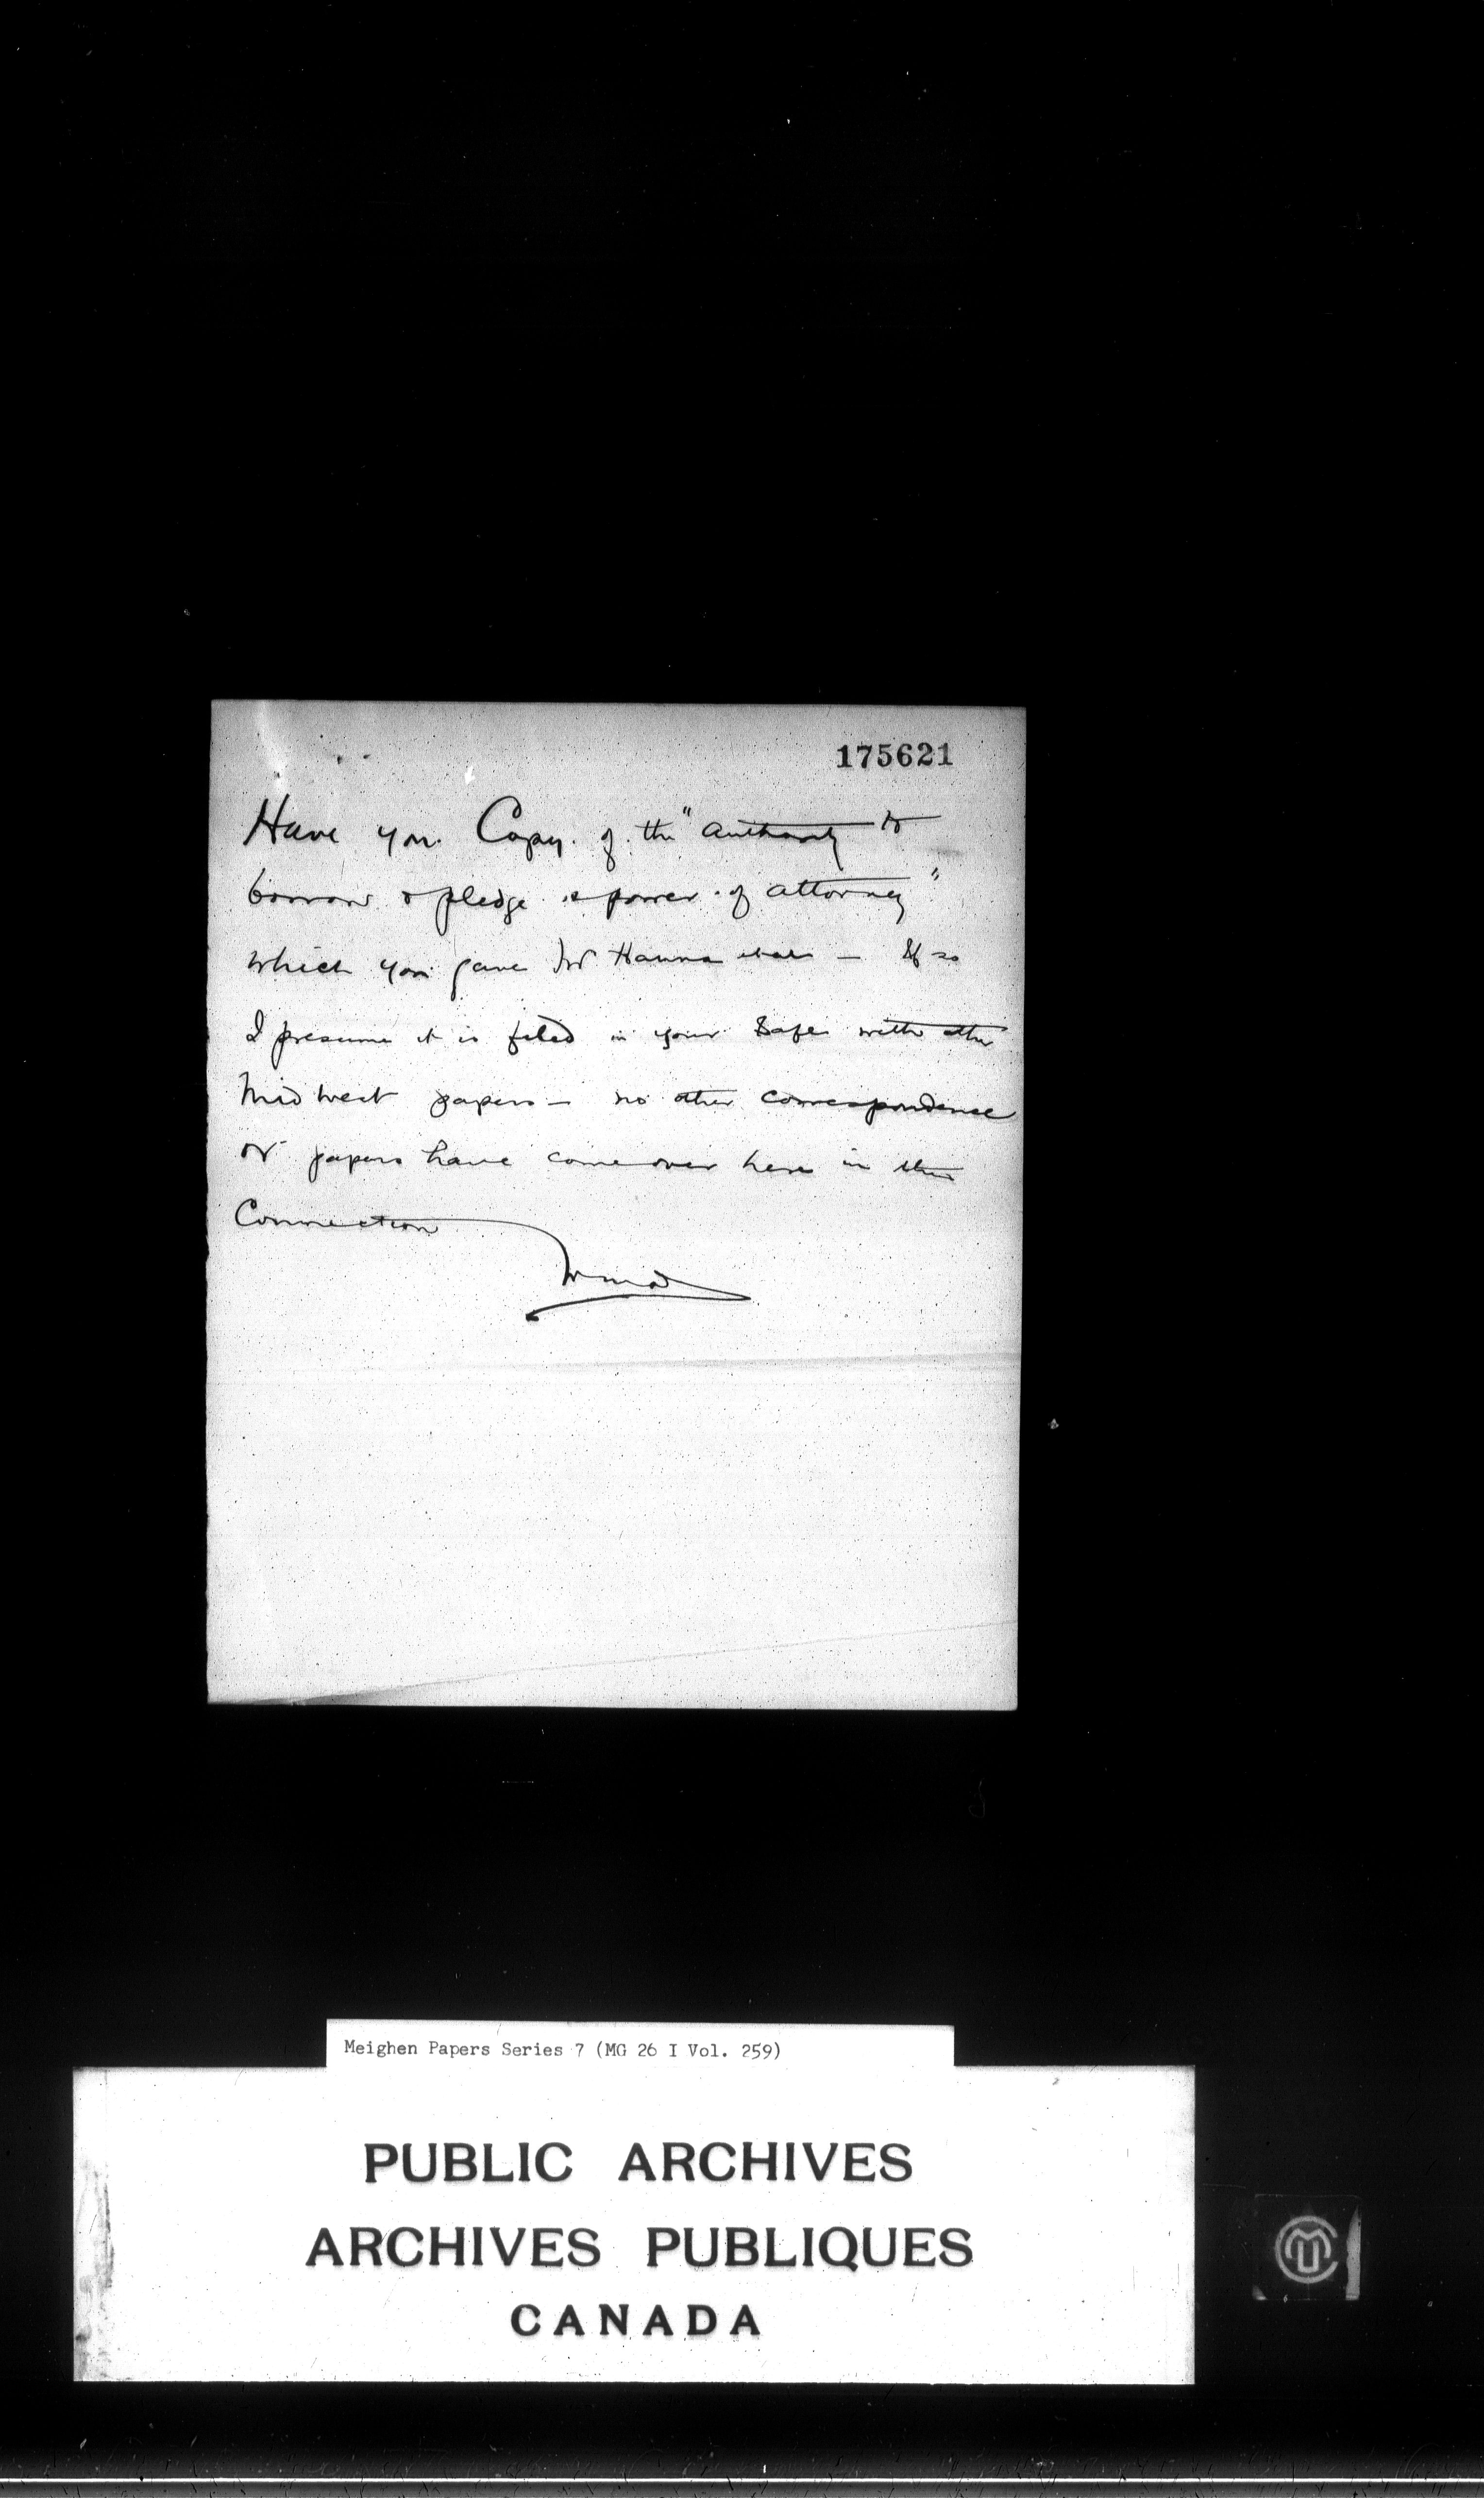 175621
Have you Copy of the "authority to
borrow & pledge & power of attorney"
which you gave Mr Hanna - If so
I presume it is filed in your Safe with other
Midwest papers - no other correspondence
or papers have come over here in this
Connection
Meighen Papers Series 7 (MG 26 I Vol. 259)
PUBLIC ARCHIVES
ARCHIVES PUBLIQUES
CANADA